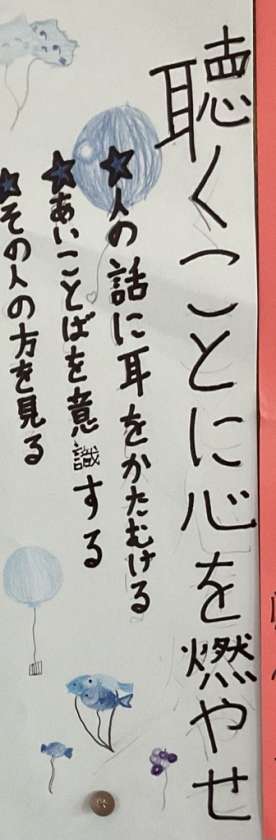 聴くことに心を燃やせ
★人の話に耳をかたむける
★あいことばを意識する
★その人の方を見る